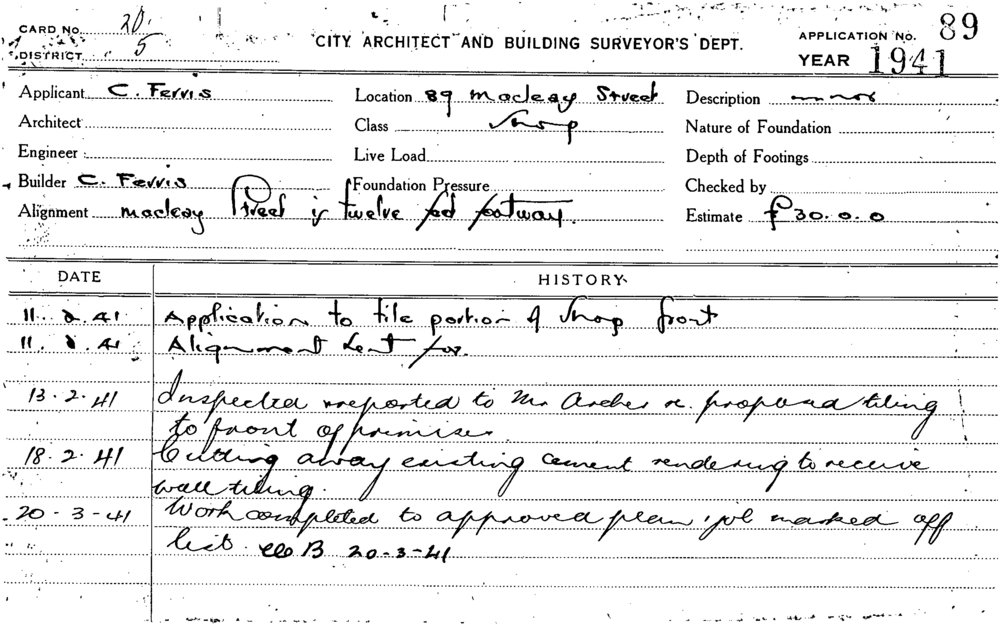 CARD No. 20.
DISTRICT 5
CITY ARCHITECT AND BUILDING SURVEYOR'S DEPT.
APPLICATION No. 89
YEAR 1941
Applicant C. Ferris Location 89 Macleay Street Description minor
Architect Class Shop Nature of Foundation
Engineer Live Load Depth of Footings
Builder C. Ferris Foundation Pressure Checked by
Alignment Macleay Street is twelve foot footway. Estimate £30.0.0
DATE HISTORY
11. 2. 41 Application to tile portion of Shop front
11. 2. 41 Alignment sent for.
13.2.41 Inspected & reported to Mr Archer re. proposed tiling
to front of premises.
18.2.41 Cutting away existing cement rendering to receive
wall tiling.
20-3-41 Work completed to approved plan, job marked off
list. B 20-3-41